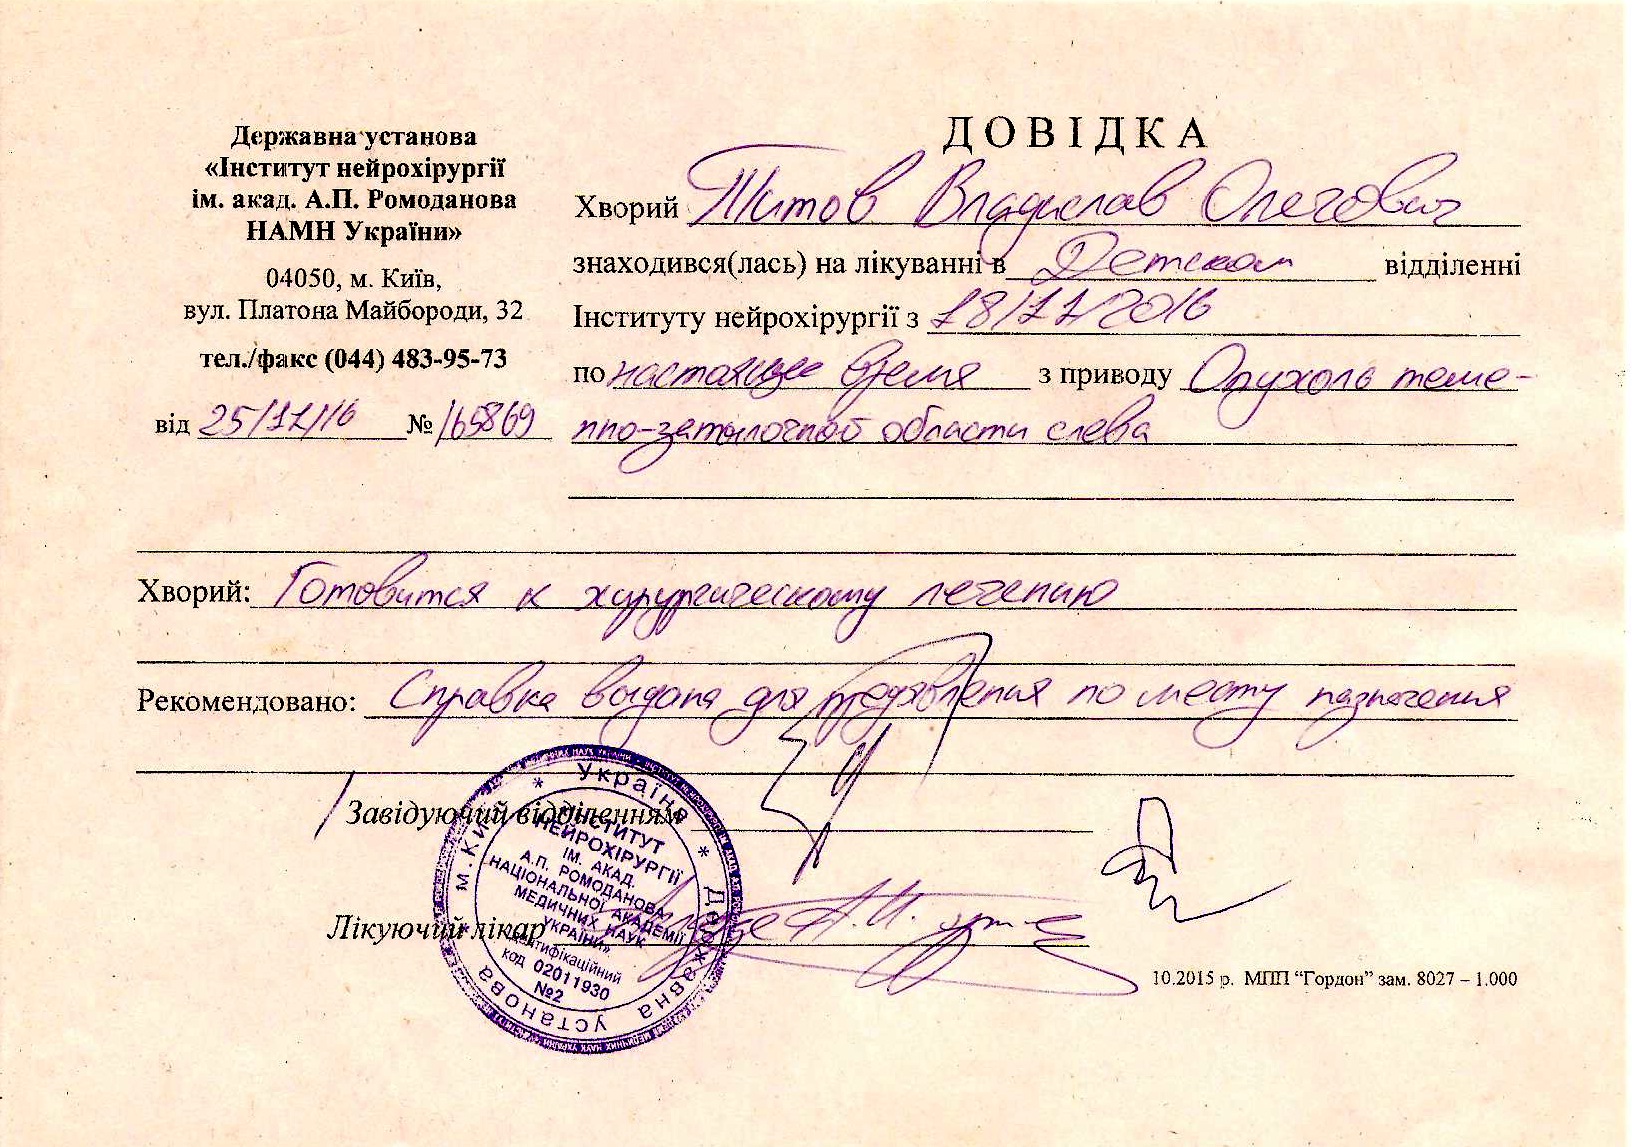 Державна установа
«Інститут нейрохірургії
ім. акад. А.П. Ромоданова
НАМН України»
04050, м. Київ,
вул. Платона Майбороди, 32
тел./факс (044) 483-95-73
від 25/11/16 № 165869
ДОВІДКА
Хворий Титов Владислав Олегович
знаходився(лась) на лікуванні в Детском відділенні
Інституту нейрохірургії з 18/11/2016
по настоящее время з приводу Опухоль теме-
нно-затылочной области слева
Хворий: Готовится к хирургическому лечению
Рекомендовано: Справка выдана для предявления по месту назначения
Завідуючий відділенням
Лікуючий лікар А.И.
Україна * Державна установа * м. Київ
«ІНСТИТУТ
НЕЙРОХІРУРГІЇ
ІМ. АКАД.
А.П. РОМОДАНОВА
НАЦІОНАЛЬНОЇ АКАДЕМІЇ
МЕДИЧНИХ НАУК
УКРАЇНИ»
Ідентифікаційний
код 02011930
№2
10.2015 р. МПП “Гордон” зам. 8027 – 1.000